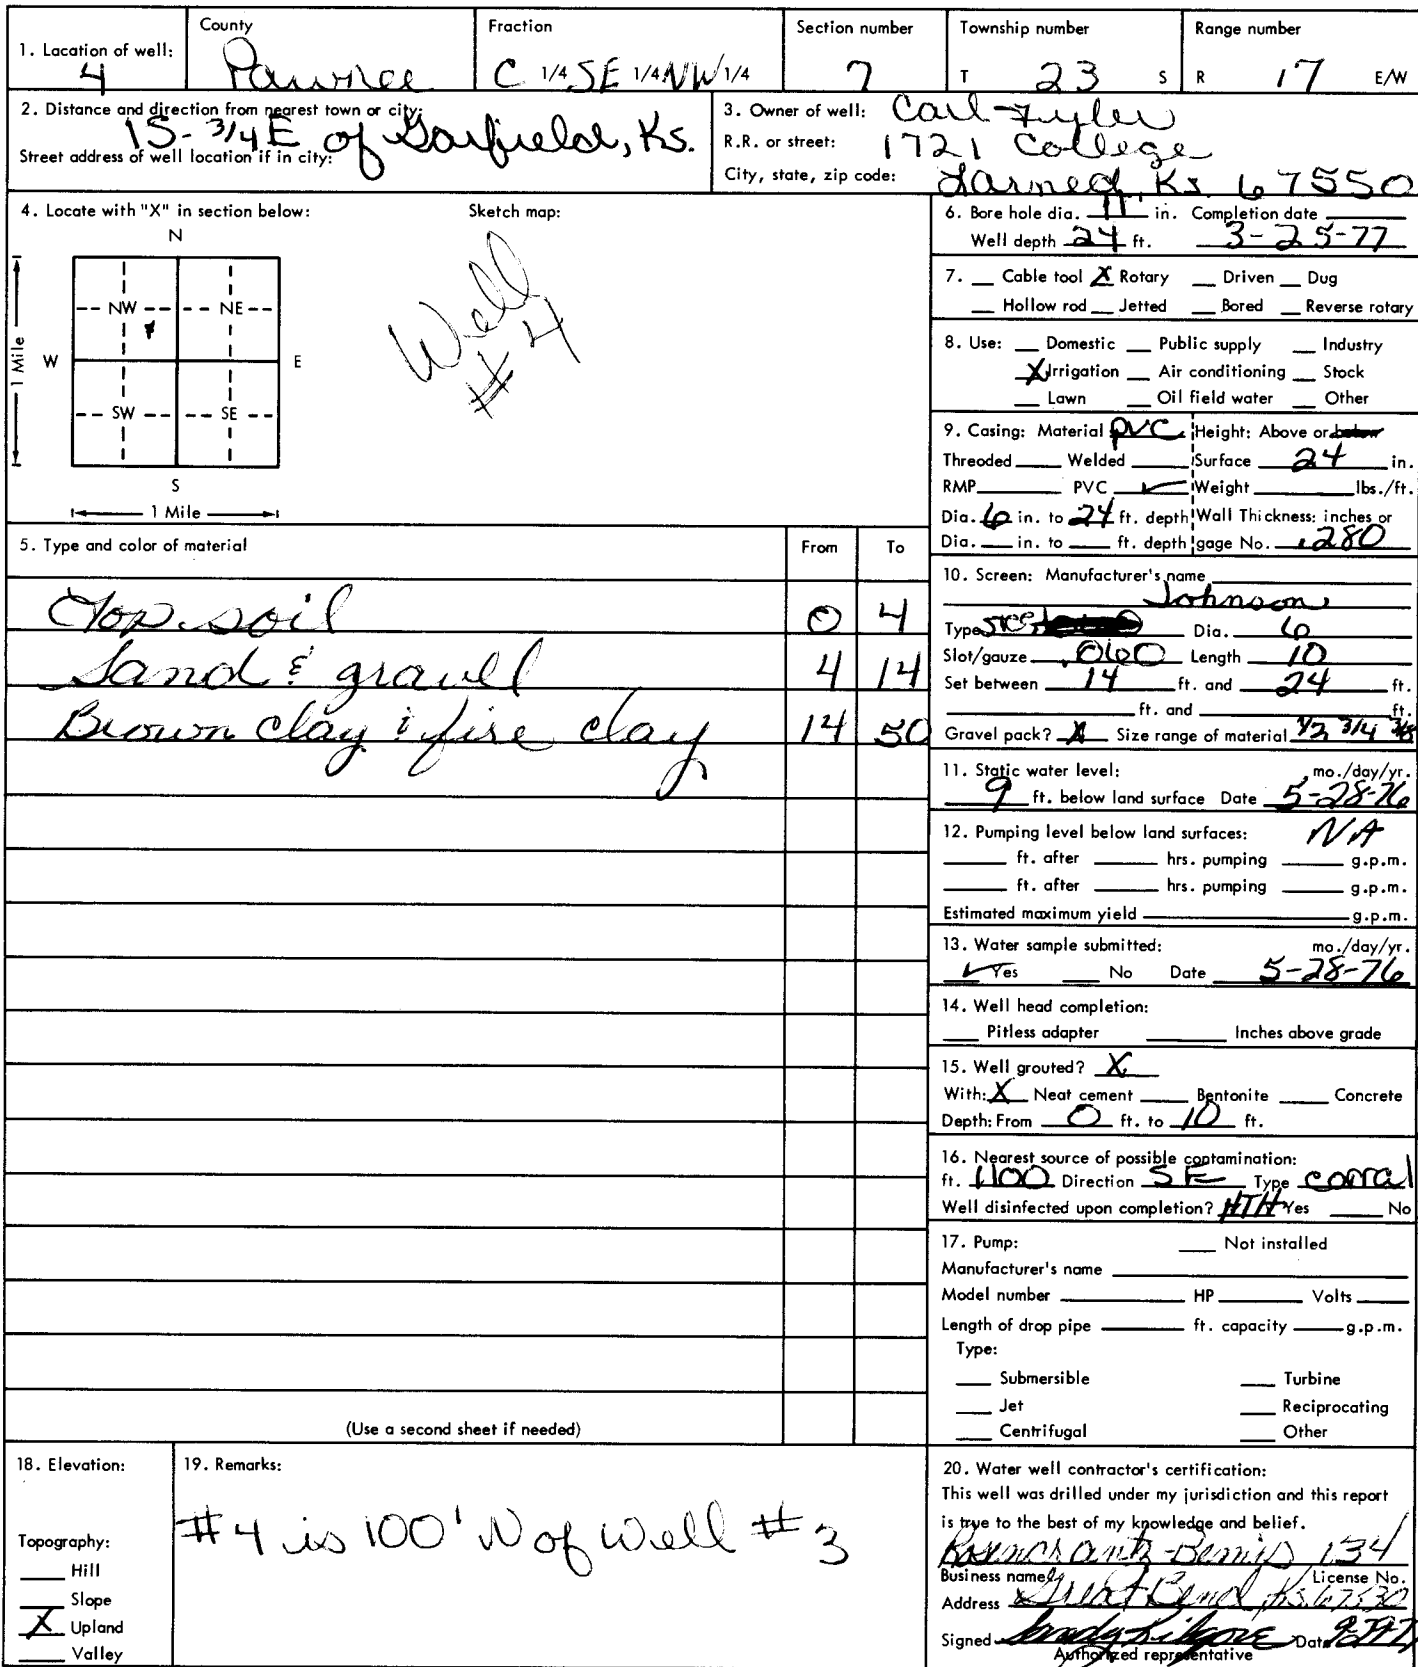 1. Location of well: 4
County Pawnee
Fraction C 1/4 SE 1/4 NW 1/4
Section number 7
Township number T 23 S
Range number R 17 E/W
2. Distance and direction from nearest town or city:
1S - 3/4 E of Garfield, Ks.
Street address of well location if in city:
3. Owner of well: Carl Fyler
R.R. or street: 1721 College
City, state, zip code: Larned, Ks 67550
4. Locate with "X" in section below:
N
NW NE
W E
SW SE
S
1 Mile
1 Mile
Sketch map:
Well
#4
5. Type and color of material From To
Top soil 0 4
Sand & gravell 4 14
Brown clay & fire clay 14 50
(Use a second sheet if needed)
6. Bore hole dia. 11 in. Completion date
Well depth 24 ft. 3-25-77
7. Cable tool X Rotary Driven Dug
Hollow rod Jetted Bored Reverse rotary
8. Use: Domestic Public supply Industry
X Irrigation Air conditioning Stock
Lawn Oil field water Other
9. Casing: Material PVC Height: Above or below
Threaded Welded Surface 24 in.
RMP PVC ✓ Weight lbs./ft.
Dia. 6 in. to 24 ft. depth Wall Thickness: inches or
Dia. in. to ft. depth gage No. .280
10. Screen: Manufacturer's name
Johnson
Type Dia. 6
Slot/gauze .060 Length 10
Set between 14 ft. and 24 ft.
ft. and ft.
Gravel pack? X Size range of material 1/2 3/4 3/8
11. Static water level: mo./day/yr.
9 ft. below land surface Date 5-28-76
12. Pumping level below land surfaces: NA
ft. after hrs. pumping g.p.m.
ft. after hrs. pumping g.p.m.
Estimated maximum yield g.p.m.
13. Water sample submitted: mo./day/yr.
✓ Yes No Date 5-28-76
14. Well head completion:
Pitless adapter Inches above grade
15. Well grouted? X
With: X Neat cement Bentonite Concrete
Depth: From 0 ft. to 10 ft.
16. Nearest source of possible contamination:
ft. 1100 Direction SE Type corral
Well disinfected upon completion? HTH Yes No
17. Pump: Not installed
Manufacturer's name
Model number HP Volts
Length of drop pipe ft. capacity g.p.m.
Type:
Submersible Turbine
Jet Reciprocating
Centrifugal Other
18. Elevation:
Topography:
Hill
Slope
X Upland
Valley
19. Remarks:
#4 is 100' N of Well #3
20. Water well contractor's certification:
This well was drilled under my jurisdiction and this report
is true to the best of my knowledge and belief.
Rosencrantz-Bemis 134
Business name License No.
Address Great Bend, Ks. 67530
Signed Sandy Kilgore Date
Authorized representative